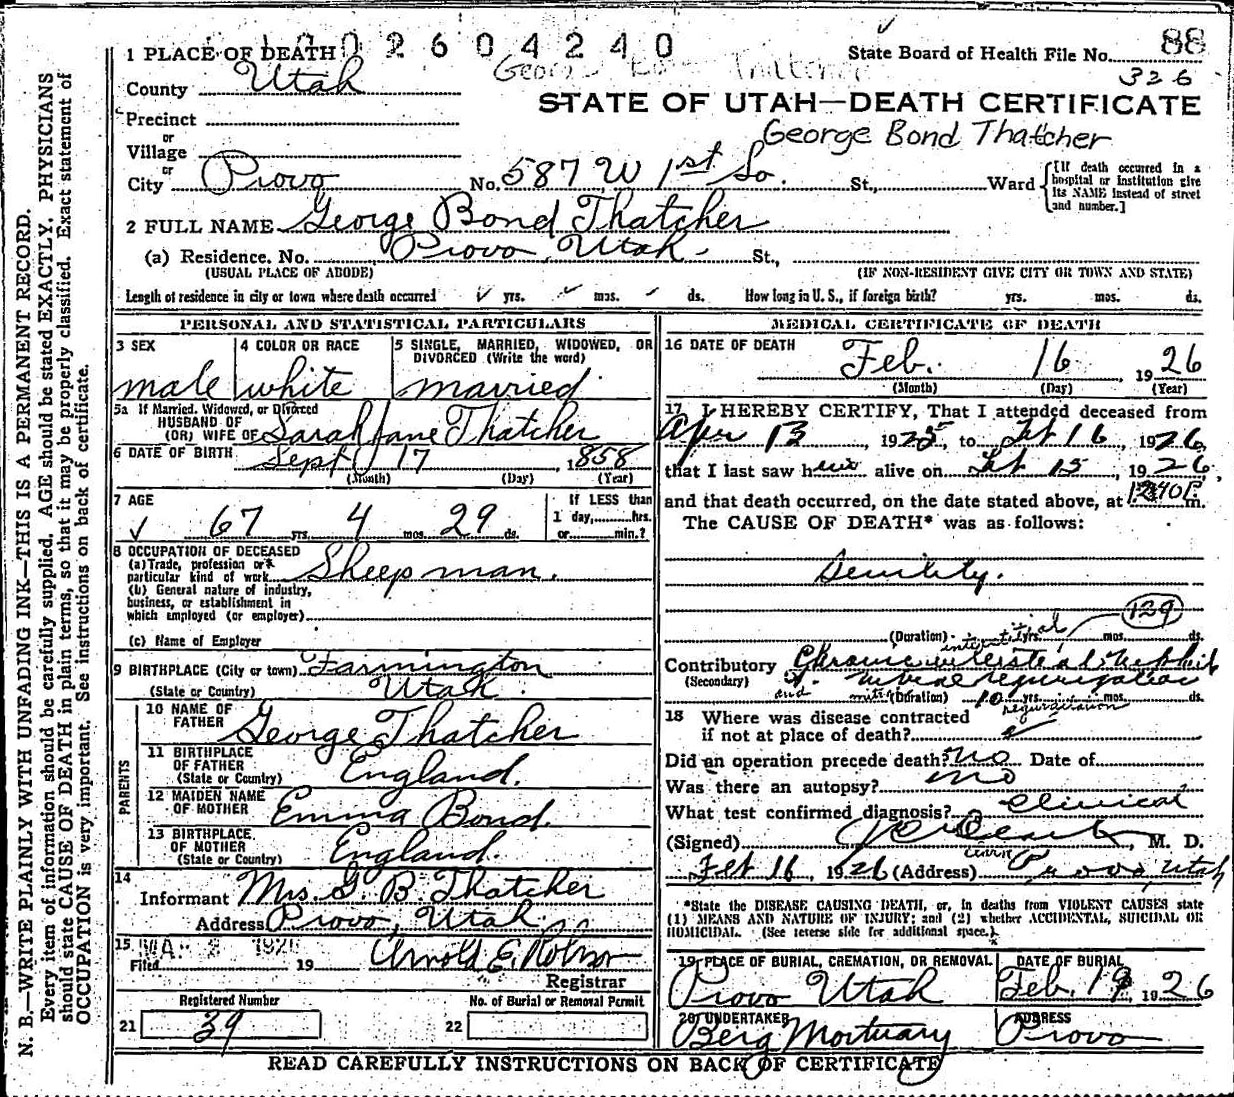 1 PLACE OF DEATH
1 0 0 2 6 0 4 2 4 0
State Board of Health File No. 88
326
County Utah
George Bond Thatcher
STATE OF UTAH—DEATH CERTIFICATE
Precinct
or
Village
George Bond Thatcher
or
City Provo No. 587 W 1st So. St., Ward
[If death occurred in a hospital or institution give its NAME instead of street and number.]
2 FULL NAME George Bond Thatcher
(a) Residence. No. Provo, Utah. St.,
(USUAL PLACE OF ABODE) (IF NON-RESIDENT GIVE CITY OR TOWN AND STATE)
Length of residence in city or town where death occurred yrs. mos. ds. How long in U. S., if foreign birth? yrs. mos. ds.
PERSONAL AND STATISTICAL PARTICULARS
3 SEX
male
4 COLOR OR RACE
white
5 SINGLE, MARRIED, WIDOWED, OR DIVORCED (Write the word)
married.
5a If Married, Widowed, or Divorced
HUSBAND OF
(OR) WIFE OF Sarah Jane Thatcher
6 DATE OF BIRTH Sept 17, 1858
(Month) (Day) (Year)
7 AGE
67 yrs. 4 mos. 29 ds.
If LESS than
1 day, hrs.
or min.?
8 OCCUPATION OF DECEASED
(a) Trade, profession or
particular kind of work Sheep man.
(b) General nature of industry,
business, or establishment in
which employed (or employer)
(c) Name of Employer
9 BIRTHPLACE (City or town) Farmington
(State or Country) Utah.
PARENTS
10 NAME OF
FATHER George Thatcher
11 BIRTHPLACE
OF FATHER
(State or Country) England.
12 MAIDEN NAME
OF MOTHER Emma Bond.
13 BIRTHPLACE
OF MOTHER
(State or Country) England.
14
Informant Mrs. G B Thatcher
Address Provo, Utah.
15
Filed 19
Registrar
Registered Number
21 39
No. of Burial or Removal Permit
22
MEDICAL CERTIFICATE OF DEATH
16 DATE OF DEATH
Feb. 16 1926
(Month) (Day) (Year)
17 I HEREBY CERTIFY, That I attended deceased from
Apr 13, 1925, to Feb 16, 1926,
that I last saw him alive on Feb 15, 1926,
and that death occurred, on the date stated above, at m.
The CAUSE OF DEATH* was as follows:
Senility.
129
(Duration) yrs. mos. ds.
interstitial
Contributory Chronic interstitial Nephritis
(Secondary) mitral regurgitation
and mitral (Duration) 10 yrs. mos. ds.
regurgitation
18 Where was disease contracted
if not at place of death?
Did an operation precede death? no Date of
Was there an autopsy? no
What test confirmed diagnosis? Clinical
(Signed), M. D.
Feb 16, 1926 (Address) Provo, Utah
*State the DISEASE CAUSING DEATH, or, in deaths from VIOLENT CAUSES state
(1) MEANS AND NATURE OF INJURY; and (2) whether ACCIDENTAL, SUICIDAL OR
HOMICIDAL. (See reverse side for additional space.)
19 PLACE OF BURIAL, CREMATION, OR REMOVAL
Provo Utah
DATE OF BURIAL
Feb. 19, 1926
20 UNDERTAKER
Berg Mortuary
ADDRESS
Provo
READ CAREFULLY INSTRUCTIONS ON BACK OF CERTIFICATE
N. B.—WRITE PLAINLY WITH UNFADING INK—THIS IS A PERMANENT RECORD.
Every item of information should be carefully supplied. AGE should be stated EXACTLY. PHYSICIANS
should state CAUSE OF DEATH in plain terms, so that it may be properly classified. Exact statement of
OCCUPATION is very important. See instructions on back of certificate.